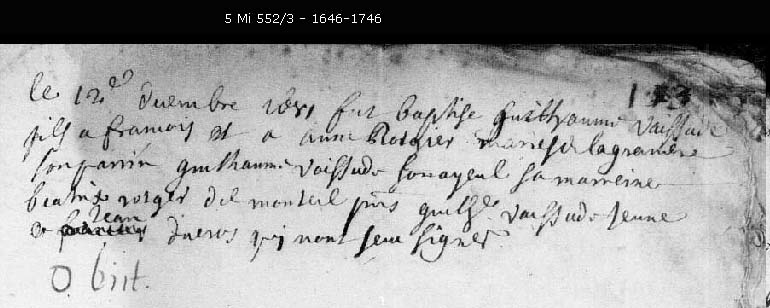 5 Mi 552/3 - 1646-1746
le 12e decembre 1651 fut baptise guilhaume vaissade
fils a francois et a anne Rotgier maries de lagraniere
son parrin guilhaume vaissade son ayeul sa marreine
beatrix rotgier del monteil pnts guilhe vaissade Jeune
Jean
et qui nont sceu signer
Obiit.